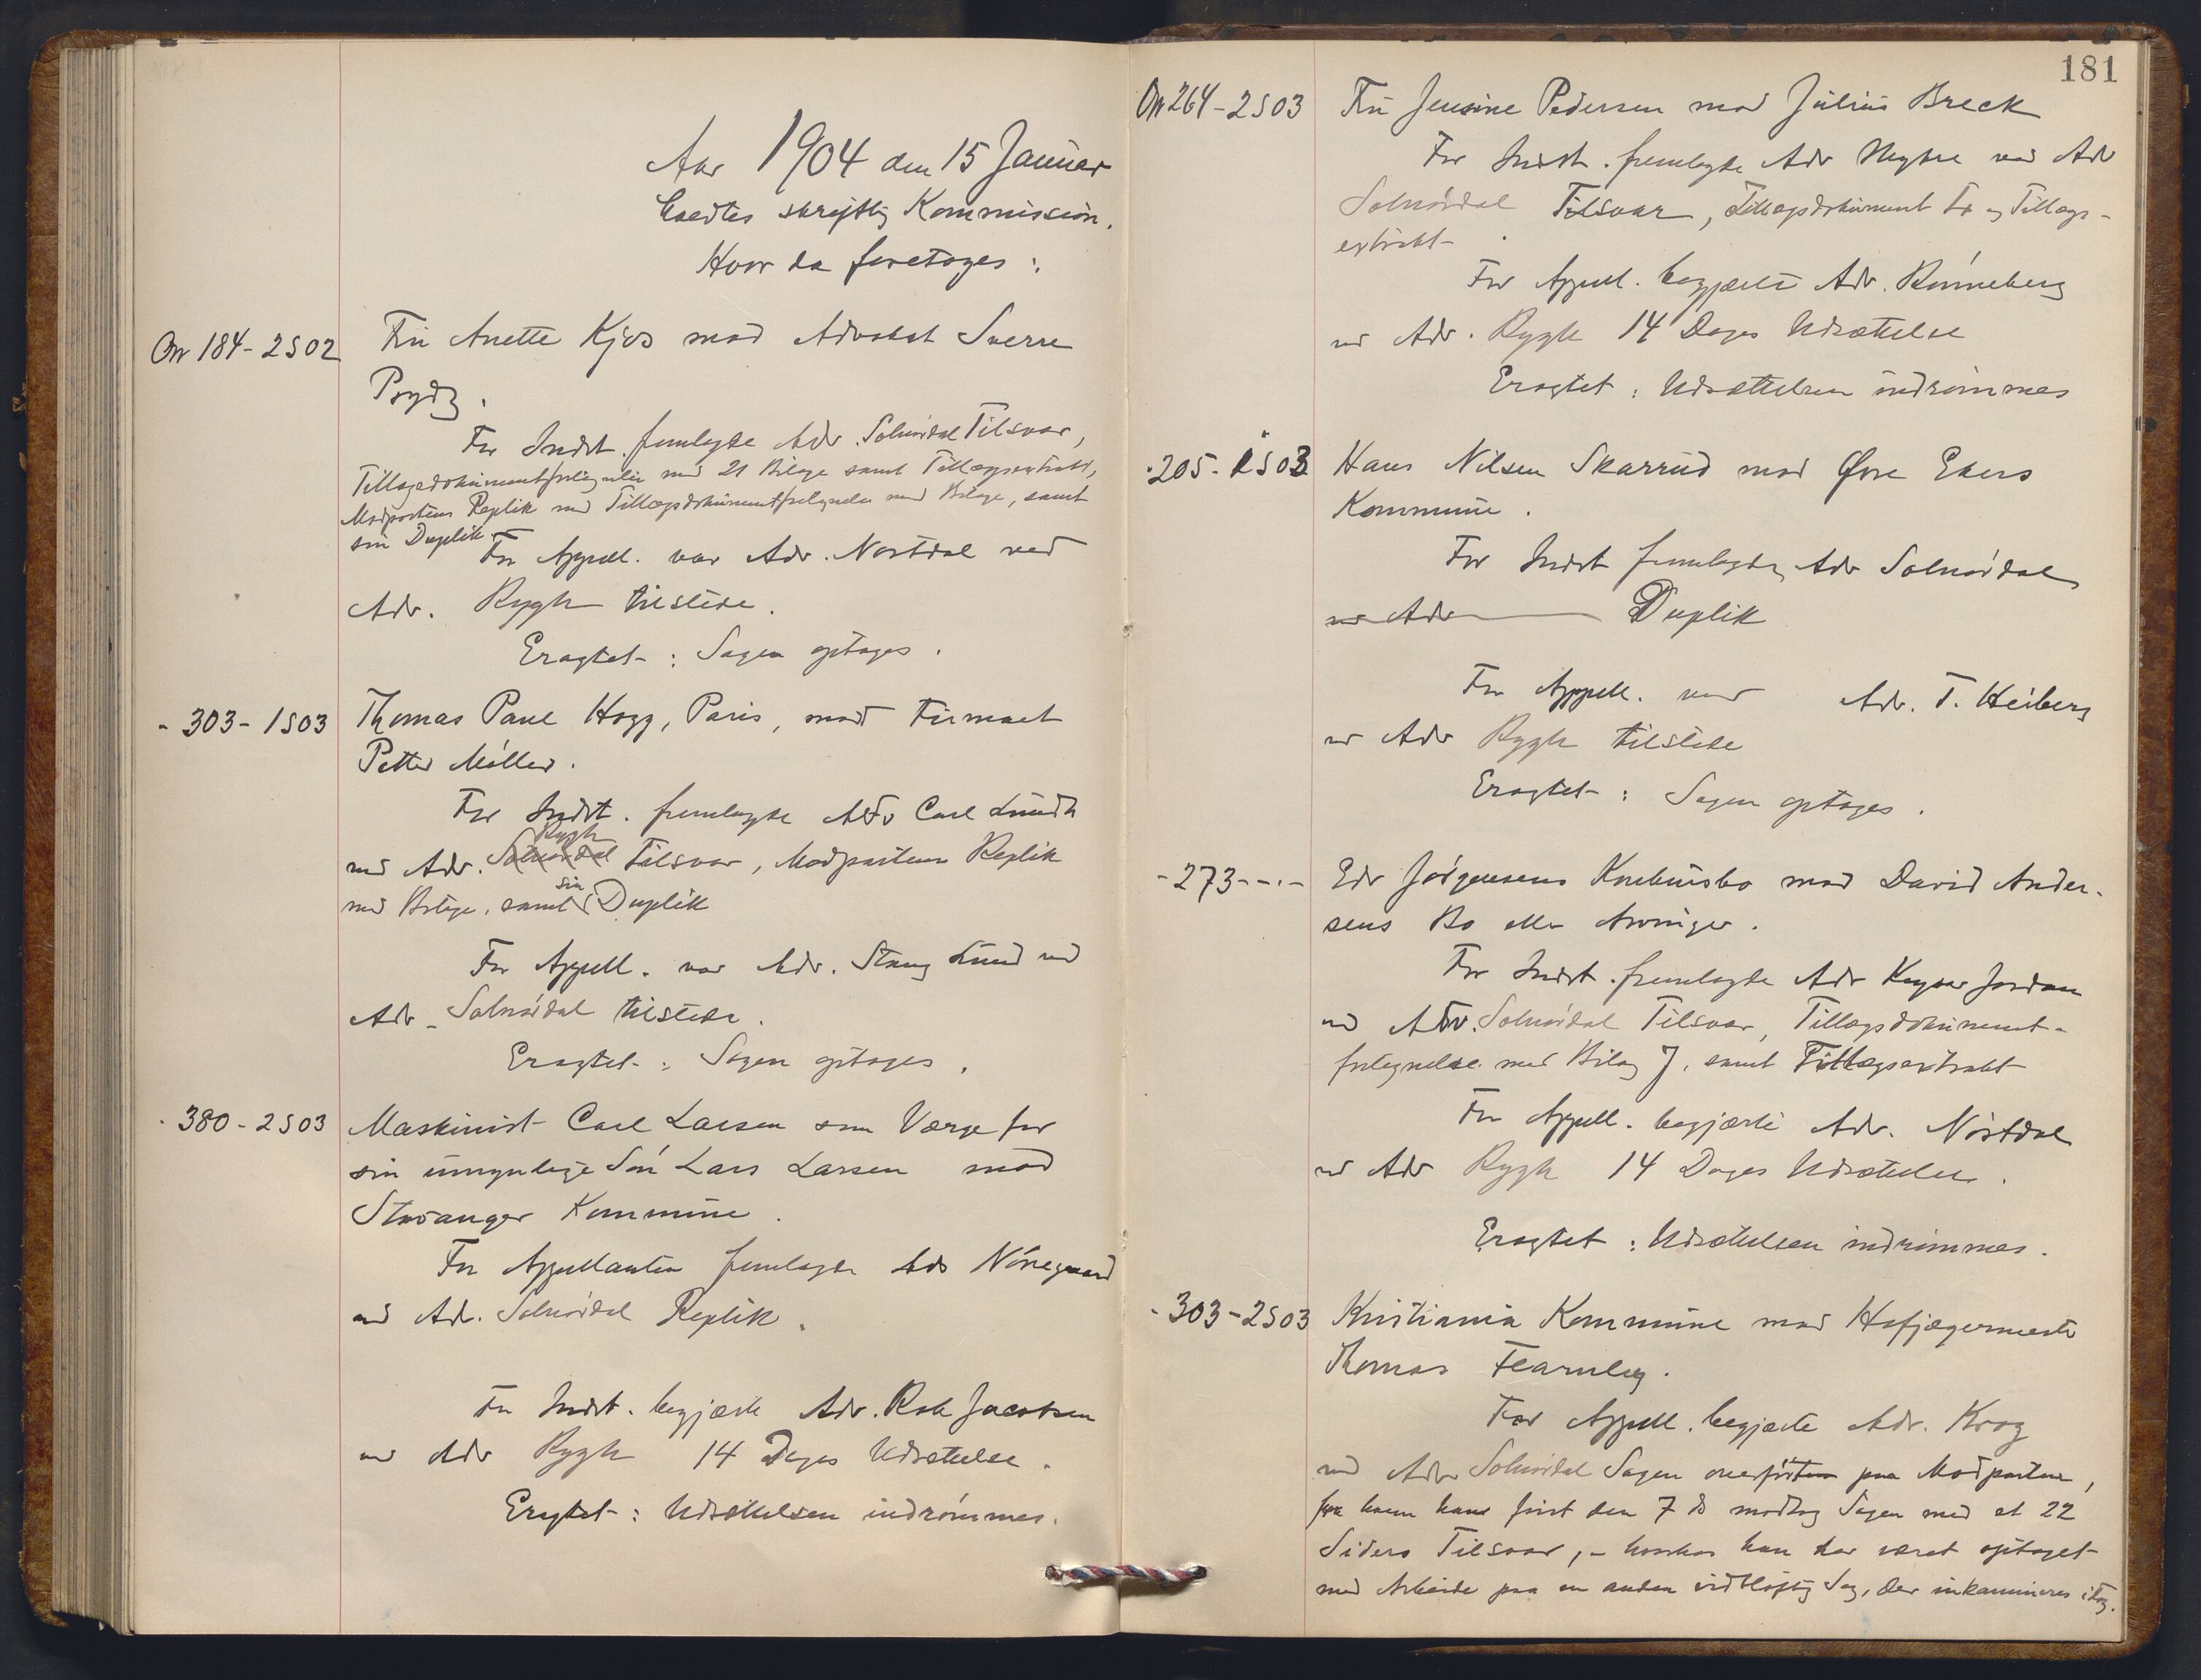 Aar 1904 den 15 Januar
holdtes skriftlig Kommission.
Hvor da foretoges:
On 184-2S02
Fru Anette Kjos mod Advokat Sverre
Prydz.
For Indst. fremlagde Adv. Solnørdal Tilsvar,
Tillægsdokumentfortegnelse med 21 Bilage samt Tillægsextrakt,
Modpartens Replik med Tillægsdokumentfortegnelse med Bilage, samt
sin Duplik.
For Appell. var Adv. Nørstdal ved
Adv. Rygh tilstede.
Eragtet: Sagen optages.
- 303-1S03
Thomas Paul Hogg, Paris, mod Firmaet
Petter Møller.
For Indst. fremlagde Adv Carl Lundh
Rygh
ved Adv. Solnørdal Tilsvar, Modpartens Replik
med Bilage, samt sin Duplik
For Appell. var Adv. Stang Lund ved
Adv. Solnørdal tilstede.
Eragtet: Sagen optages.
- 380-2S03
Maskinist Carl Larsen som Værge for
sin umyndige Søn Lars Larsen mod
Stavanger Kommune.
For Appellanten fremlagde Adv Nørregaard
ved Adv. Solnørdal Replik.
For Indst. begjærte Adv. Rob Jacobsen
ved Adv Rygh 14 Dages Udsættelse.
Eragtet: Udsættelsen indrømmes.
181
On 264-2S03
Fru Jensine Pedersen mod Julius Breck
For Indst. fremlagde Adv Meyhre ved Adv
Solnørdal Tilsvar, Tillægsdokument og Tillægs-
extrakt.
For Appell. begjærte Adv. Rønneberg
ved Adv. Rygh 14 Dages Udsættelse
Eragtet: Udsættelsen indrømmes
- 205-1S03
Hans Nilsen Skarrud mod Øvre Ekers
Kommune.
For Indst fremlagde Adv Solnørdal
ved Adv Duplik
For Appell. var Adv. T. Heiberg
ved Adv Rygh tilstede
Eragtet: Sagen optages.
- 273 - -
Edv Jørgensens Konkursbo mod David Ander-
sens Bo eller Arvinger.
For Indst. fremlagde Adv Keyser Jordan
ved Adv. Solnørdal Tilsvar, Tillægsdokument-
fortegnelse med Bilag J, samt Tillægsextrakt
For Appell. begjærte Adv. Nørstdal
ved Adv Rygh 14 Dages Udsættelse.
Eragtet: Udsættelsen indrømmes.
- 303-2S03
Kristiania Kommune mod Hofjægermester
Thomas Fearnley.
For Appell. begjærte Adv. Krog
ved Adv Solnørdal Sagen overført paa Modparten,
fra hvem han først den 7 ds modtog Sagen med et 22
Siders Tilsvar, - hvorhos han har været optaget
med Arbeide paa en anden vidtløftig Sag, der inkamineres idag.